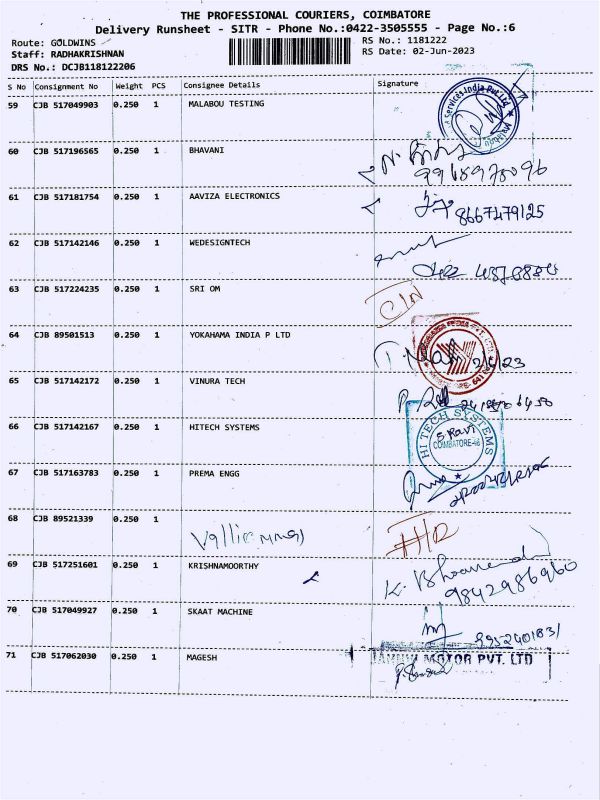 THE PROFESSIONAL COURIERS, COIMBATORE
Delivery Runsheet - SITR - Phone No.:0422-3505555 - Page No.:6
Route: GOLDWINS
RS No.: 1181222
Staff: RADHAKRISHNAN
RS Date: 02-Jun-2023
DRS No.: DCJB118122206
S No Consignment No Weight PCS Consignee Details Signature
59 CJB 517049903 0.250 1 MALABOU TESTING
Services India Pvt Ltd
60 CJB 517196565 0.250 1 BHAVANI
61 CJB 517181754 0.250 1 AAVIZA ELECTRONICS
8667479125
62 CJB 517142146 0.250 1 WEDESIGNTECH
63 CJB 517224235 0.250 1 SRI OM
64 CJB 89501513 0.250 1 YOKAHAMA INDIA P LTD
65 CJB 517142172 0.250 1 VINURA TECH
66 CJB 517142167 0.250 1 HITECH SYSTEMS
HI TECH SYSTEMS
S Ravi
COIMBATORE-48
67 CJB 517163783 0.250 1 PREMA ENGG
68 CJB 89521339 0.250 1
69 CJB 517251601 0.250 1 KRISHNAMOORTHY
9842986960
70 CJB 517049927 0.250 1 SKAAT MACHINE
9952401831
71 CJB 517062030 0.250 1 MAGESH
MOTOR PVT. LTD